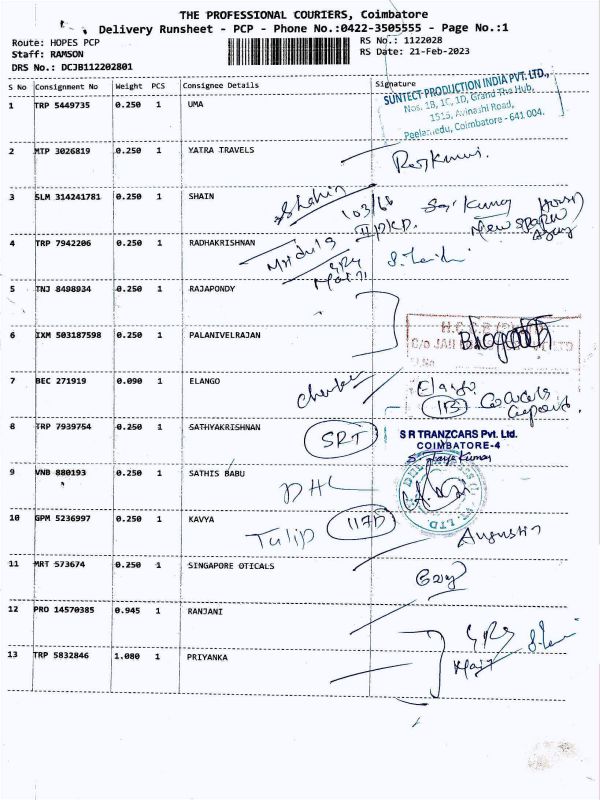 THE PROFESSIONAL COURIERS, Coimbatore
Delivery Runsheet - PCP - Phone No.:0422-3505555 - Page No.:1
Route: HOPES PCP
RS No.: 1122028
Staff: RAMSON
RS Date: 21-Feb-2023
DRS No.: DCJB112202801
S No Consignment No Weight PCS Consignee Details Signature
SUNTECT PRODUCTION INDIA PVT. LTD.,
Nos. 1B, 1C, 1D, Grand The Hub,
1515, Avinashi Road,
Peelamedu, Coimbatore - 641 004.
1 TRP 5449735 0.250 1 UMA
2 MTP 3026819 0.250 1 YATRA TRAVELS
3 SLM 314241781 0.250 1 SHAIN
Shahin
103/66
4 TRP 7942206 0.250 1 RADHAKRISHNAN
5 TNJ 8498934 0.250 1 RAJAPONDY
6 IXM 503187598 0.250 1 PALANIVELRAJAN
7 BEC 271919 0.090 1 ELANGO
Elango
8 TRP 7939754 0.250 1 SATHYAKRISHNAN
SRT
S R TRANZCARS Pvt. Ltd.
COIMBATORE-4
9 VNB 880193 0.250 1 SATHIS BABU
DHL
10 GPM 5236997 0.250 1 KAVYA
Tulip
117D
Augustin
11 MRT 573674 0.250 1 SINGAPORE OTICALS
12 PRO 14570385 0.945 1 RANJANI
13 TRP 5832846 1.080 1 PRIYANKA